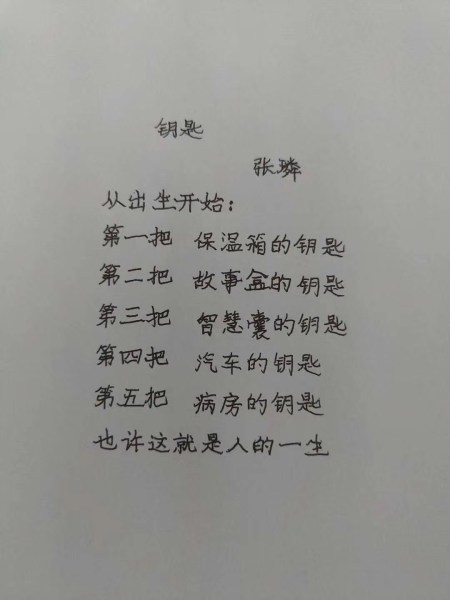 钥匙
张璘
从出生开始：
第一把 保温箱的钥匙
第二把 故事盒的钥匙
第三把 智慧囊的钥匙
第四把 汽车的钥匙
第五把 病房的钥匙
也许这就是人的一生